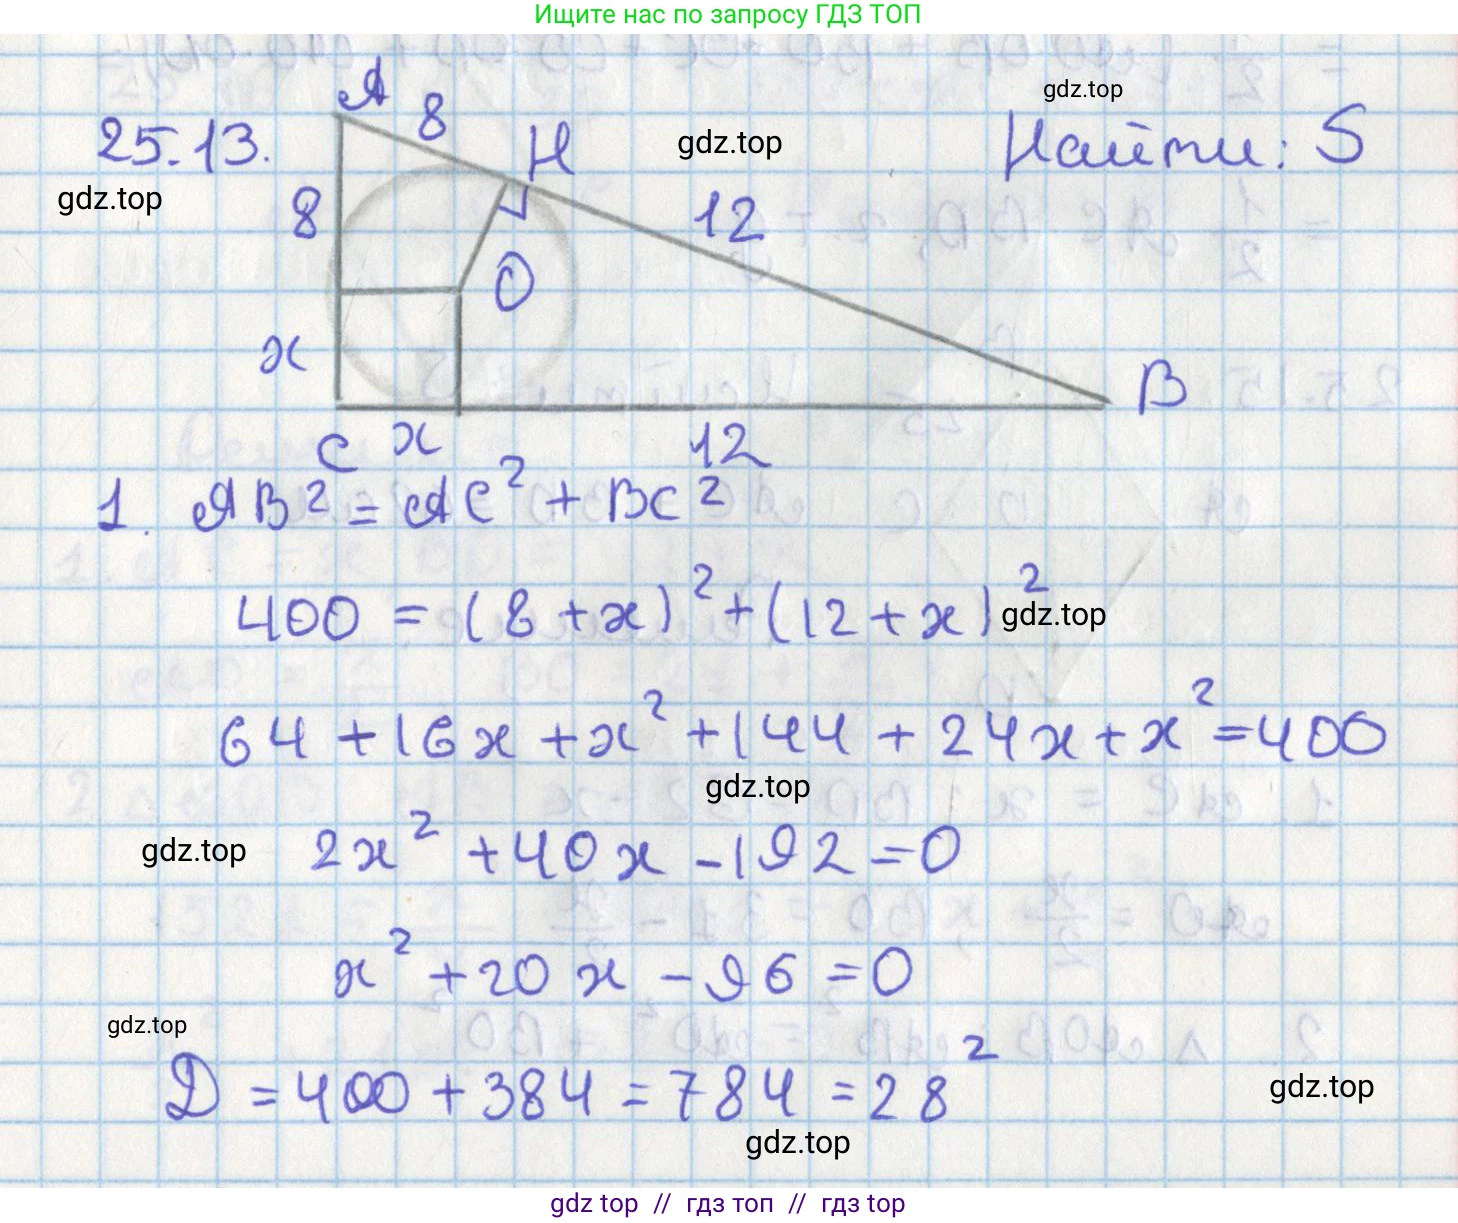 Ищите нас по запросу ГДЗ ТОП
gdz.top
25.13.
A
8
H
gdz.top
Найти: S
gdz.top
8
12
O
x
B
C
x
12
1. AB² = AC² + BC²
400 = (8 + x)² + (12 + x)²
gdz.top
64 + 16x + x² + 144 + 24x + x² = 400
gdz.top
gdz.top
2x² + 40x - 192 = 0
x² + 20x - 96 = 0
gdz.top
Д = 400 + 384 = 784 = 28²
gdz.top
gdz.top
gdz top // гдз топ // гдз top